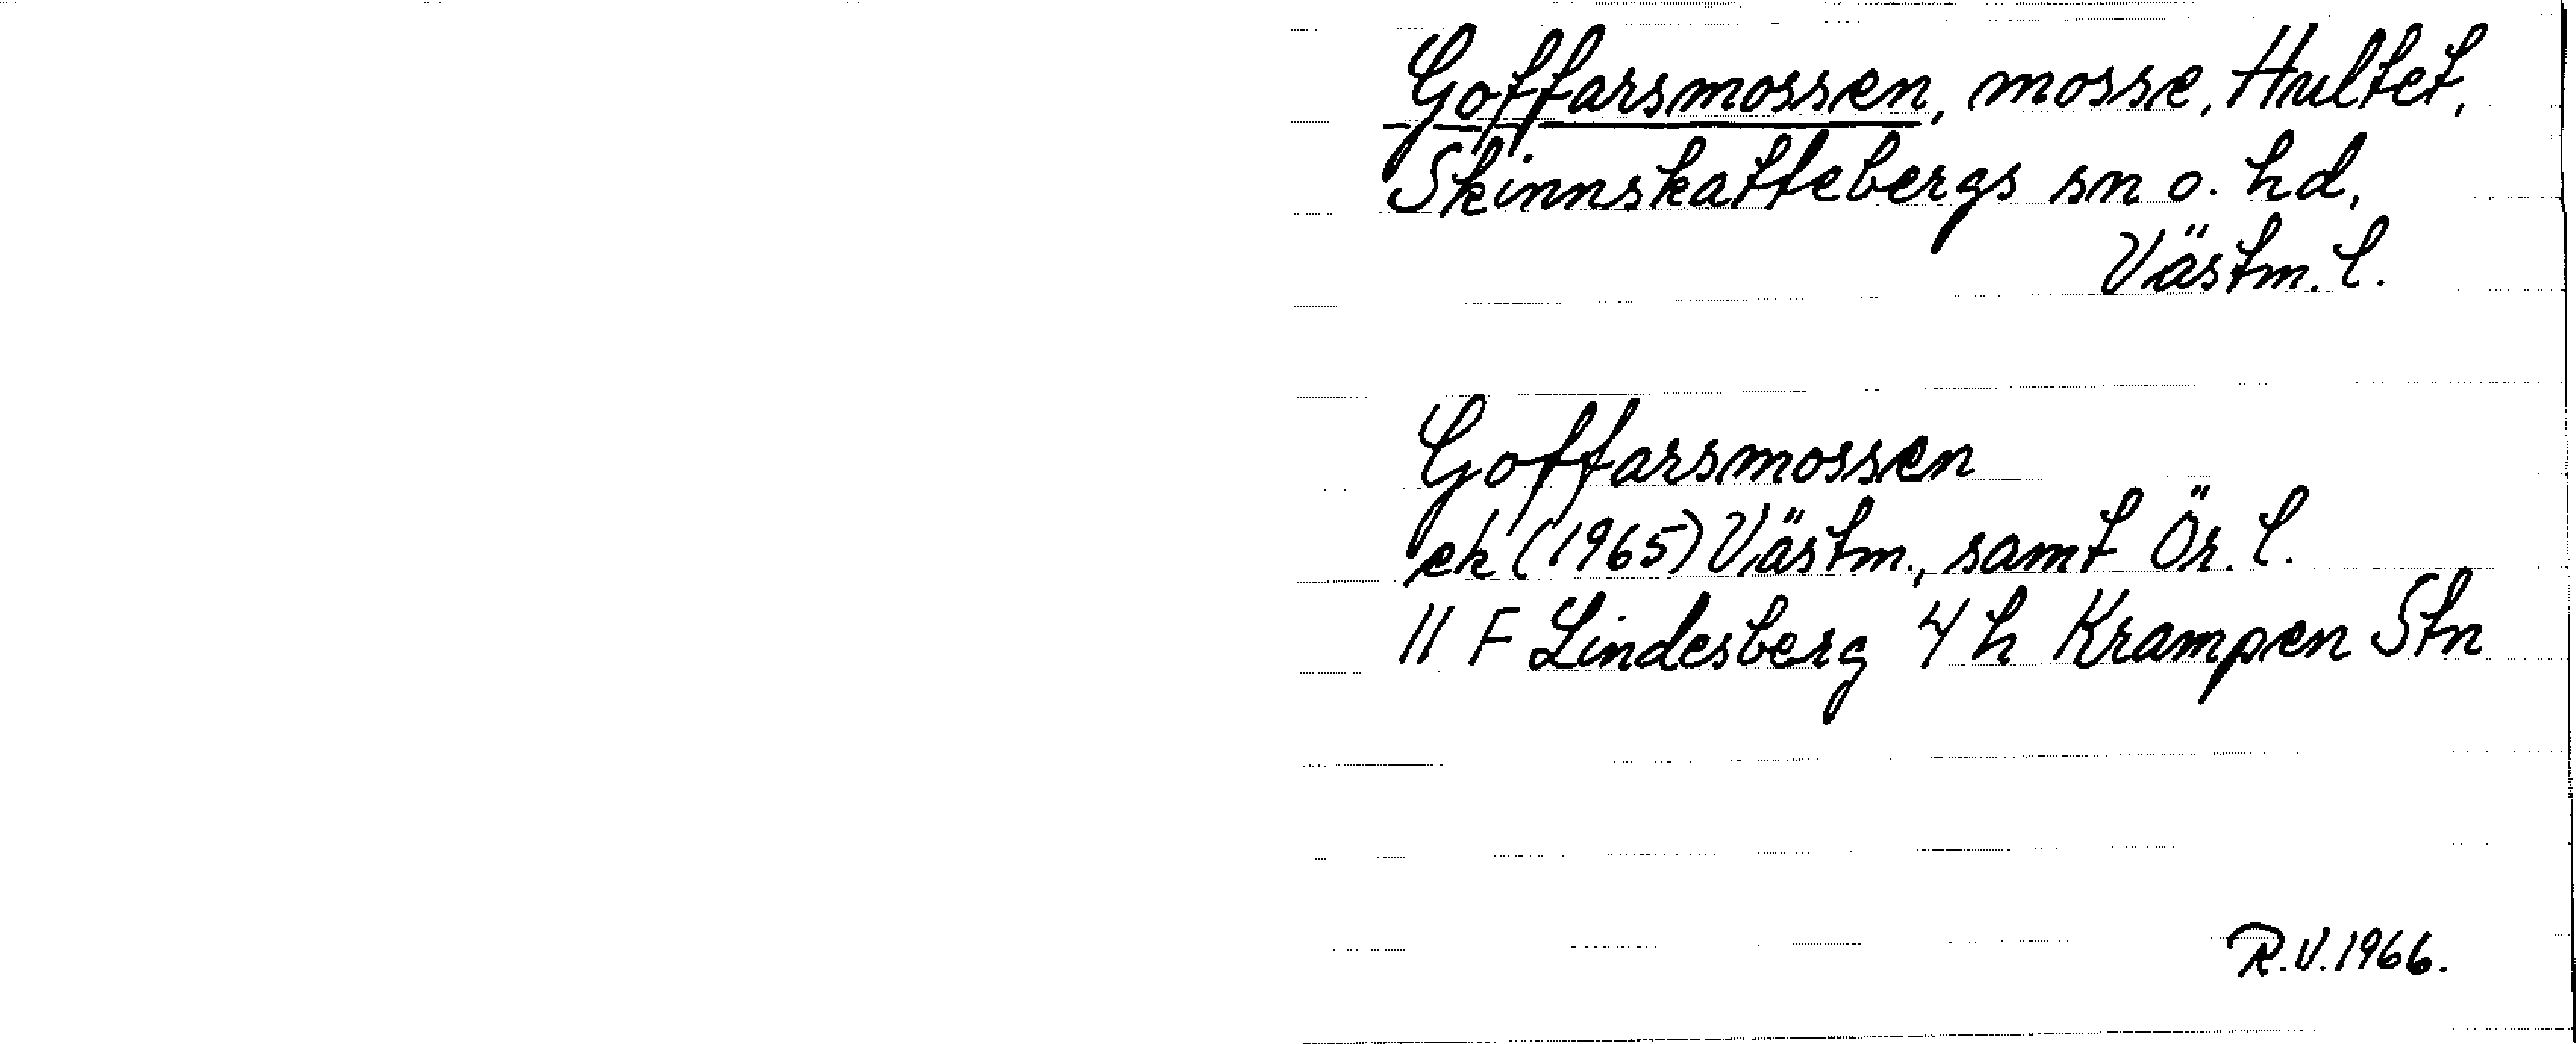 Goffarsmossen, mosse, Hultet,
Skinnskattebergs sn o. hd,
Västm. l.
Goffarsmossen
ek (1965) Västm., samt Ör. l.
11 F Lindesberg 4 h Krampen Stn
R.V. 1966.